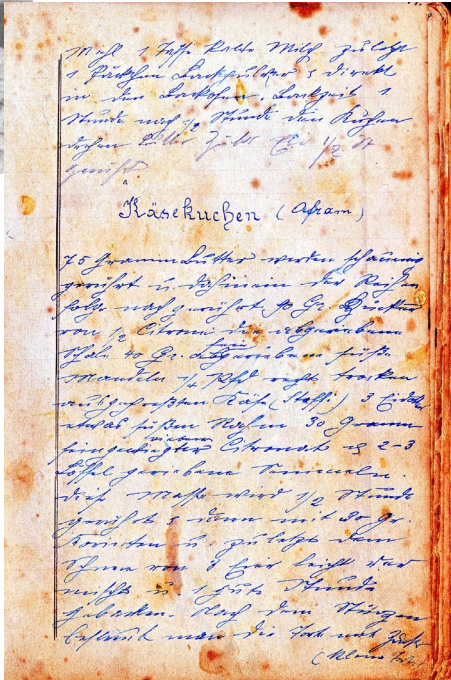 Mehl 1 Tasse kalte Milch zuletzt
1 Päckchen Backpulver & direkt
in den Backofen. Backzeit 1
Stunde nach ½ Stunde den Kuchen
drehen Butter Zucker Eier ½ St
gerührt
Käsekuchen (Afram)
75 Gramm Butter werden schaumig
gerührt u. dahinein der Reihen
folge nach gerührt 90 Gr. Zucker
von ½ Citrone die abgeriebene
Schale 40 Gr. fein geriebene süße
Mandeln ¼ Pfd recht trocken
ausgepreßten Käse (Stoffi) 3 Eidotter
etwas süßen Rahm 30 Gramm
feingewiegter Citronat & 2-3
Löffel geriebene Semmeln
diese Masse wird ½ Stunde
gerührt & dann mit 30 Gr.
Korinten u. zuletzt dem
Schnee von 3 Eier leicht ver
mischt u 1 gute Stunde
gebacken. Nach dem Stürzen
bestreut man die Tort mit Zucker
(kleine Tort)